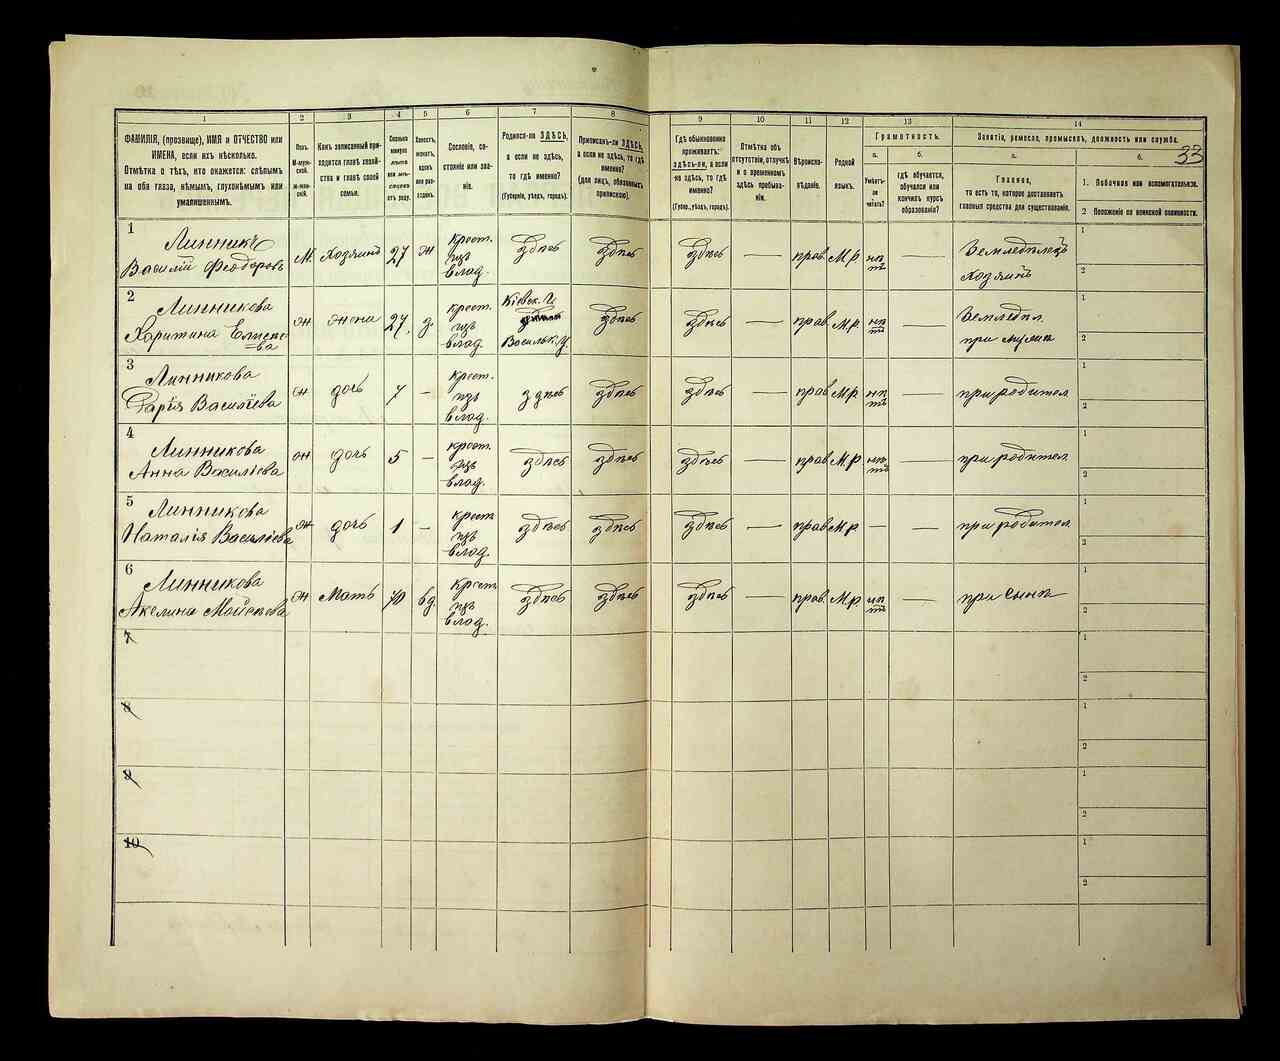 33
1 2 3 4 5 6 7 8 9 10 11 12 13 14
ФАМИЛІЯ, (прозвище), ИМЯ и ОТЧЕСТВО или
ИМЕНА, если ихъ нѣсколько.
Отмѣтка о тѣхъ, кто окажется: слѣпымъ
на оба глаза, нѣмымъ, глухонѣмымъ или
умалишеннымъ.
Полъ.
М-муж-
ской.
ж-жен-
скій.
Какъ записанный при-
ходится главѣ хозяй-
ства и главѣ своей
семьи.
Сколько
минуло
лѣтъ
или мѣ-
сяцевъ
отъ роду.
Холостъ,
женатъ,
вдовъ
или раз-
веденъ.
Сословіе, со-
стояніе или зва-
ніе.
Родился-ли ЗДѢСЬ,
а если не здѣсь,
то гдѣ именно?
(Губернія, уѣздъ, городъ).
Приписанъ-ли ЗДѢСЬ,
а если не здѣсь, то гдѣ
именно?
(для лицъ, обязанныхъ
припискою).
Гдѣ обыкновенно
проживаетъ:
здѣсь-ли, а если
не здѣсь, то гдѣ
именно?
(Губер., уѣздъ, городъ).
Отмѣтка объ
отсутствіи, отлучкѣ
и о временномъ
здѣсь пребыва-
ніи.
Вѣроиспо-
вѣданіе.
Родной
языкъ.
Грамотность.
а.
Умѣетъ-
ли
читать?
б.
гдѣ обучается,
обучался или
кончилъ курсъ
образованія?
Занятіе, ремесло, промыселъ, должность или служба.
а.
Главное,
то есть то, которое доставляетъ
главныя средства для существованія.
б.
1. Побочное или вспомогательное.
2 Положеніе по воинской повинности.
1
Линникъ
Василій Феодоровъ
М. Хозяинъ 27 ж
крест.
изъ
влад.
здѣсь здѣсь здѣсь — прав. М.р. нѣтъ —
Земледѣлецъ
хозяинъ
1
2
2
Линникова
Харитина
ж жена 27 з.
крест.
изъ
влад.
Кіевск. Г.
Васильк. у.
здѣсь здѣсь — прав. М.р. нѣтъ —
Земледѣл.
1
2
3
Линникова
Дарія Василіева
ж дочь 7 —
крест.
изъ
влад.
здѣсь здѣсь здѣсь — прав М.р нѣтъ —
при родител
1
2
4
Линникова
Анна Василіева
ж дочь 5 —
крест.
изъ
влад.
здѣсь здѣсь здѣсь — прав М.р нѣтъ —
при родител
1
2
5
Линникова
Наталія Василіева
ж дочь 1 —
крест
изъ
влад.
здѣсь здѣсь здѣсь — прав М.р. — —
при родител
1
2
6
Линникова
ж Мать 70 вд.
крест
изъ
влад.
здѣсь здѣсь здѣсь — прав. М.р. нѣтъ —
при сынѣ
1
2
7
1
2
8
1
2
9
1
2
10
1
2